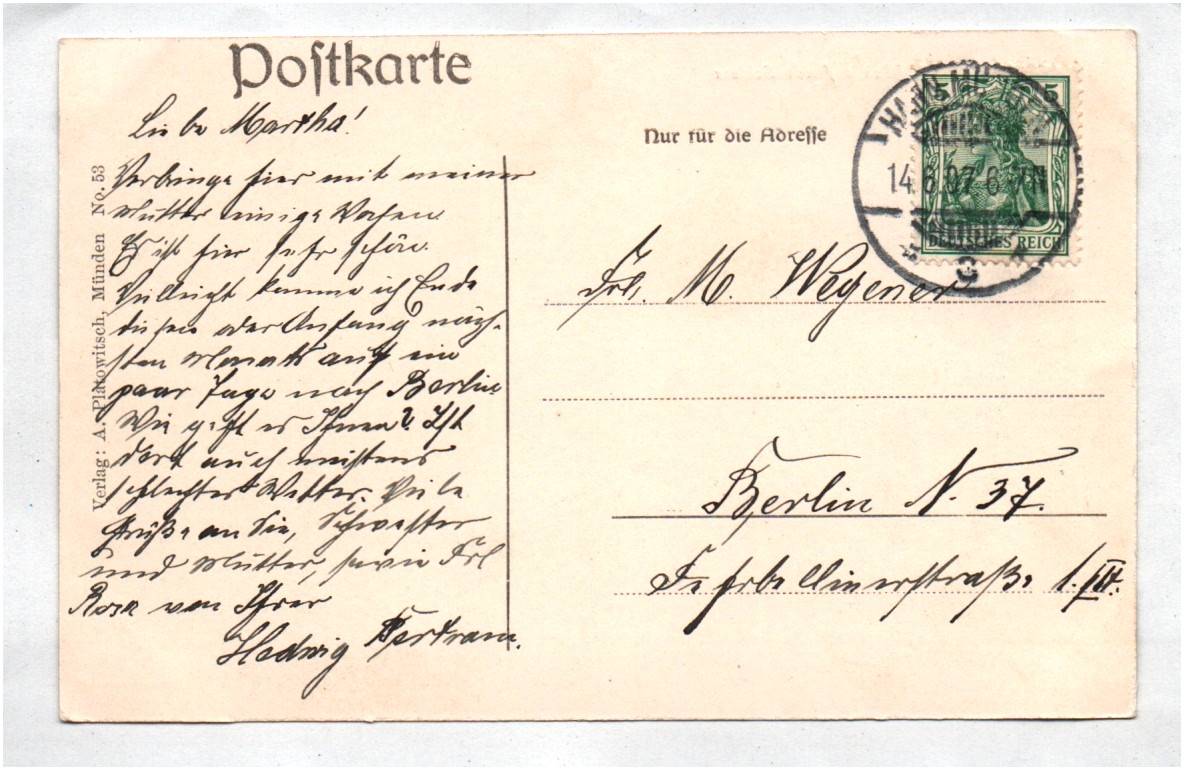 Postkarte
Liebe Martha!
Verbringe hier mit meiner
Mutter einige Wochen.
Es ist hier sehr schön.
Vielleicht komme ich Ende
diesen oder Anfang näch-
sten Monats auf ein
paar Tage nach Berlin.
Wie geht es Ihnen? Ist
dort auch meistens
schlechtes Wetter. Viele
Grüße an Sie, Schwester
und Mutter, sowie Frl
Rosa von Ihrer
Hedwig Bertram.
Verlag: A. Platowitsch, Münden No. 53
Nur für die Adresse
5 5
14.6.07.6-7N
DEUTSCHES REICH
Frl. M. Wegener
Berlin N. 37.
Fehrbellinerstraße 1. III.